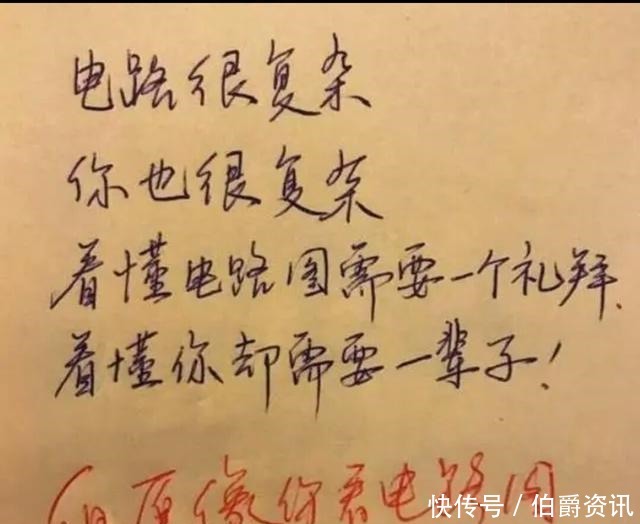 电路很复杂
你也很复杂
看懂电路图需要一个礼拜.
看懂你却需要一辈子!
像你看电路图
快传号 / 伯爵资讯